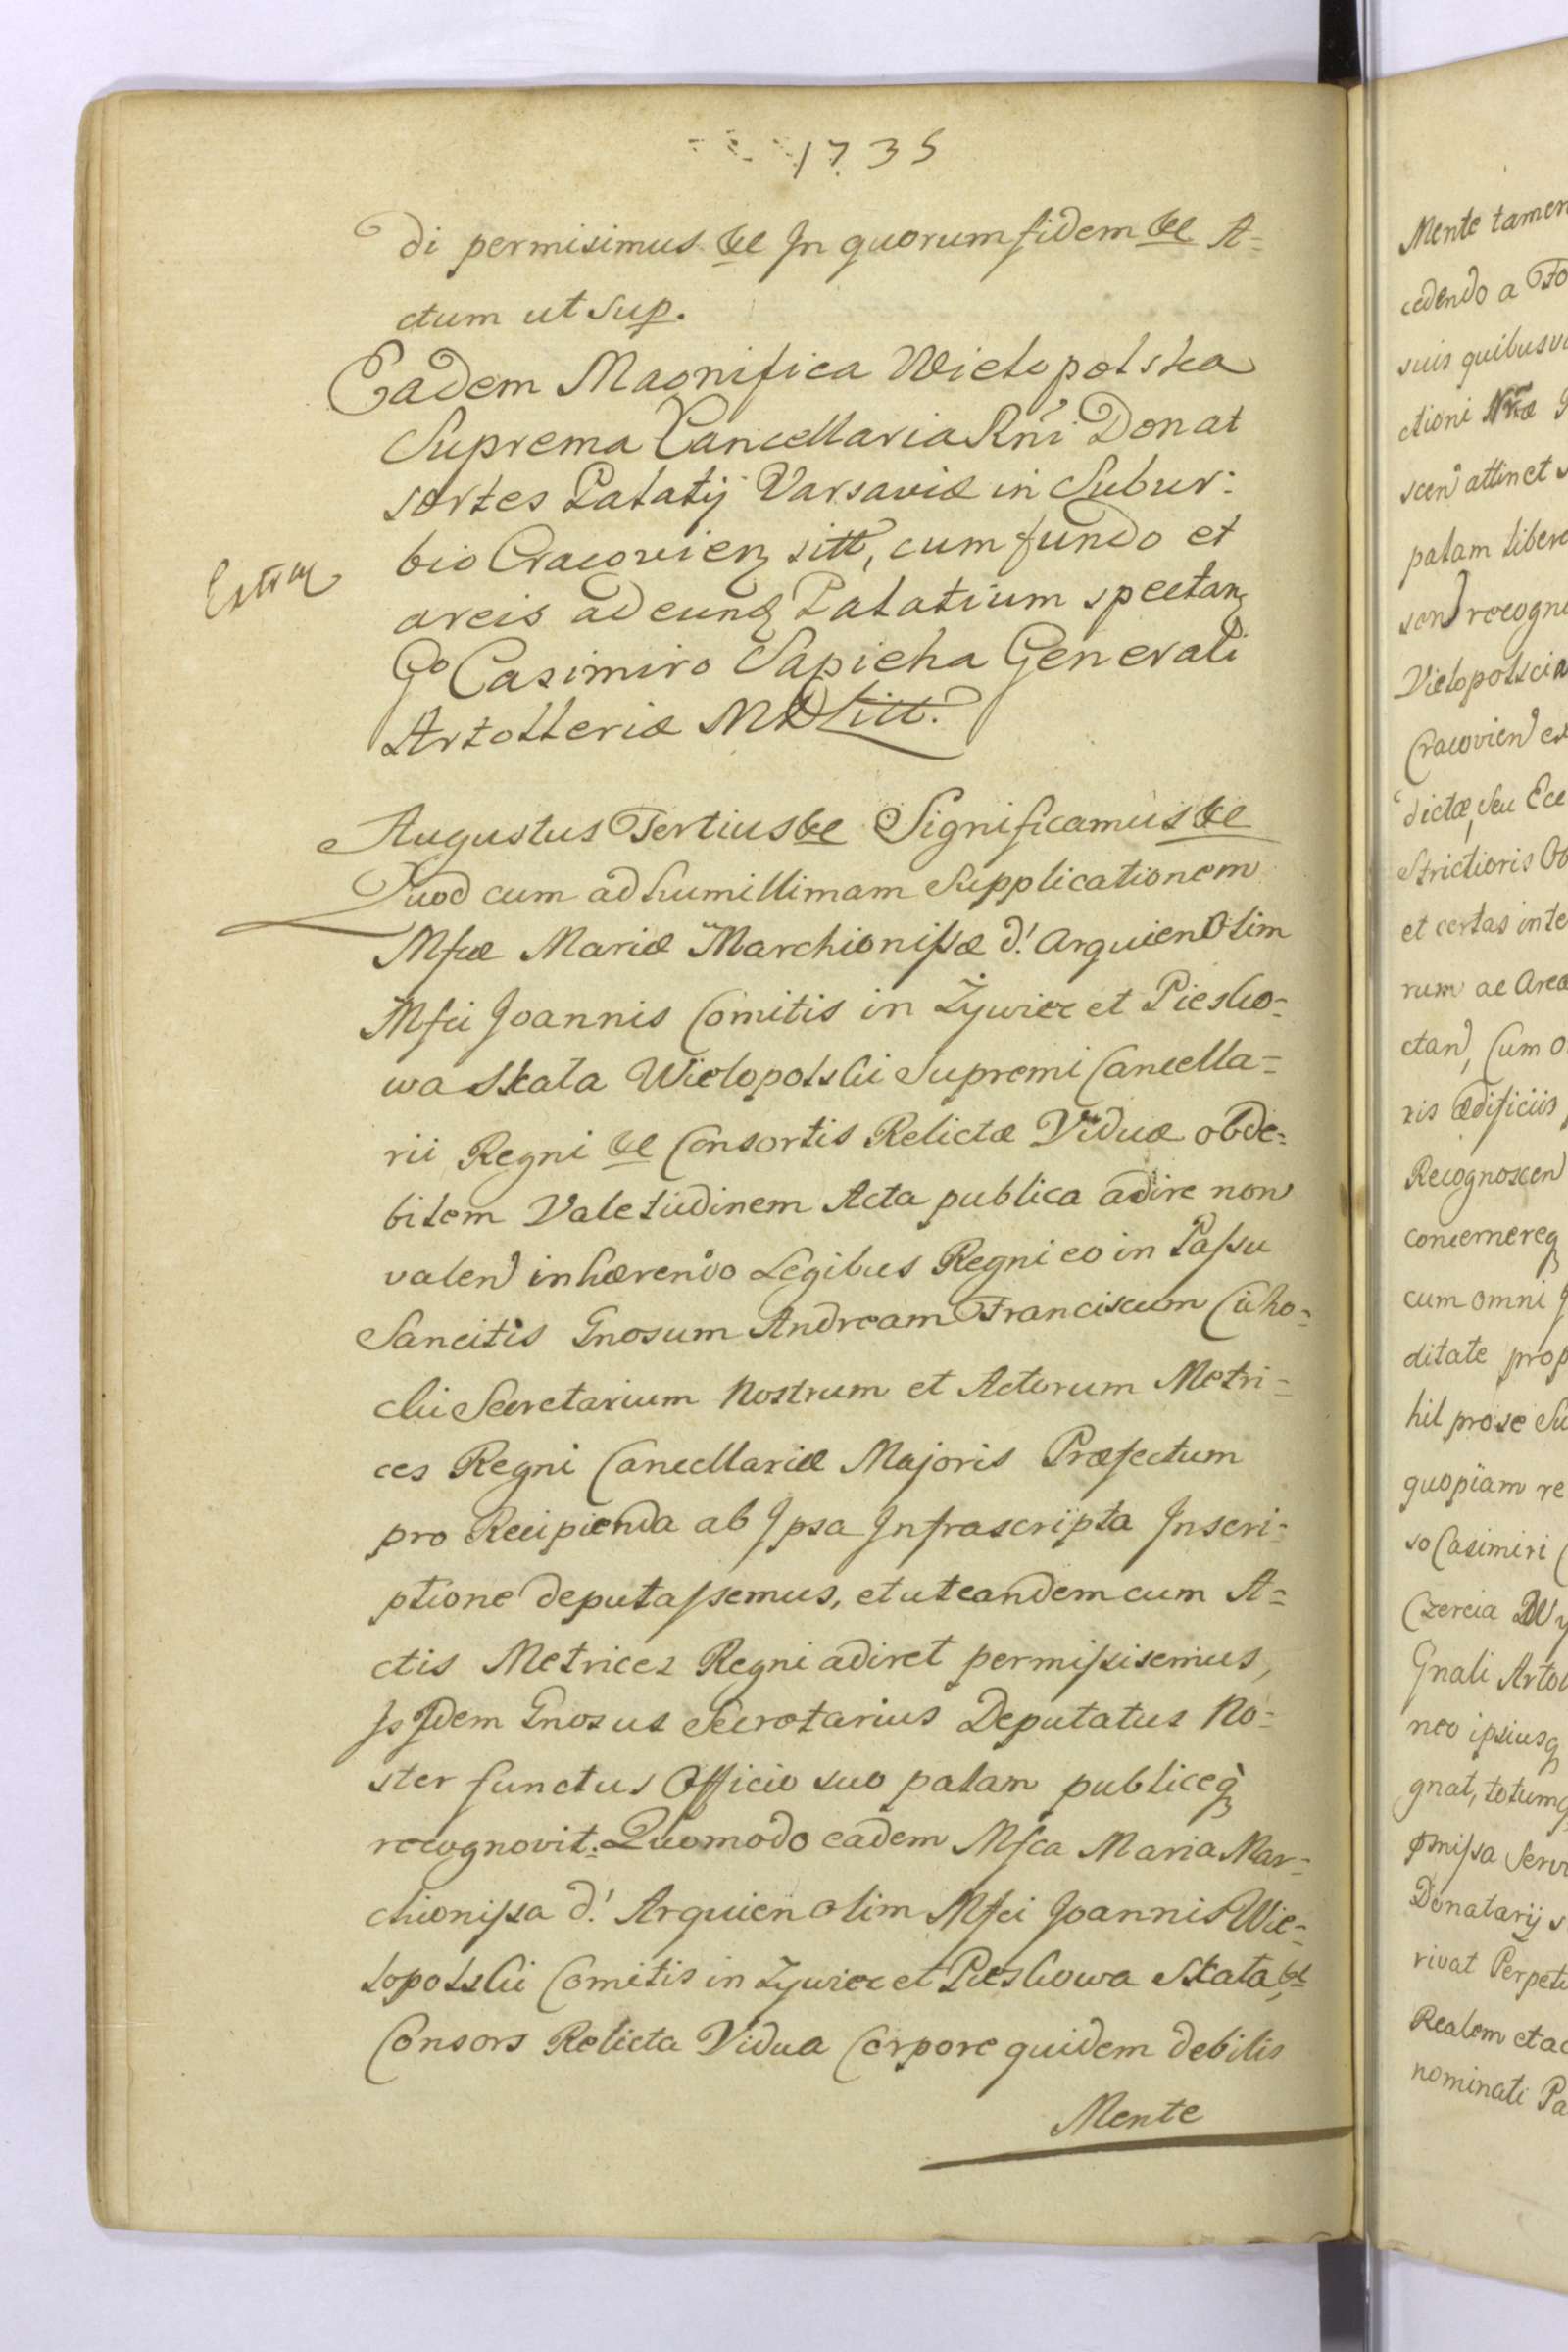 1735
di permisimus &c In quorum fidem &c A=
ctum ut Sup.
Eadem Magnifica Wielopolska
Suprema Cancellaria Rni Donat
sortes Palatij Varsaviæ in Subur=
bio Cracovien sitt, cum fundo et
Extra
areis ad eunq Palatium spectan
Go Casimiro Sapieha Generali
Artolleriæ MDLitt.
Augustus Tertius &c Significamus &c
Quod cum ad humillimam Supplicationem
Mfcæ Mariæ Marchionissæ d'. Arquien Olim
Mfci Joannis Comitis in Żywiec et Piesko=
wa Skała Wielopolski Supremi Cancella=
rii Regni &c Consortis Relictæ Viduæ ob de=
bilem Valetudinem Acta publica adire non
valen inhærendo Legibus Regni eo in Passu
Sancitis Gnosum Andream Franciscum Cicho=
cki Secretarium Nostrum et Actorum Metri=
ces Regni Cancellariæ Majoris Præfectum
pro Recipienda ab Ipsa Infrascripta Inscri=
ptione deputassemus, et ut eandem cum A=
ctis Metrices Regni adiret permissisemus,
Is Idem Gnosus Secretarius Deputatus No=
ster functus Officio suo palam publiceq
recognovit. Quomodo eadem Mfca Maria Mar=
chionissa d'. Arquien olim Mfci Joannis Wie=
lopolski Comitis in Zywiec et Pieskowa Skała &c
Consors Relicta Vidua Corpore quidem debilis
Mente
Mente tamen
cedendo a Fo
suis quibusv
ctioni Nræ
scen attinet
palam libere
scen recogn
Vielopolscia
Cracovien ex
dictæ, seu Ece
Strictioris Ob
et certas inte
rum ac Area
ctan, Cum o
ris ædificiis
Recognoscen
concernereq
cum omni J
ditate prop
hil pro se Su
quopiam re
so Casimiri C
Czereia
Gnali Artol
neo ipsiusq
gnat, totumq
pmissa Serv
Donatarij s
rivat Perpet
Realem et ac
nominati Pa